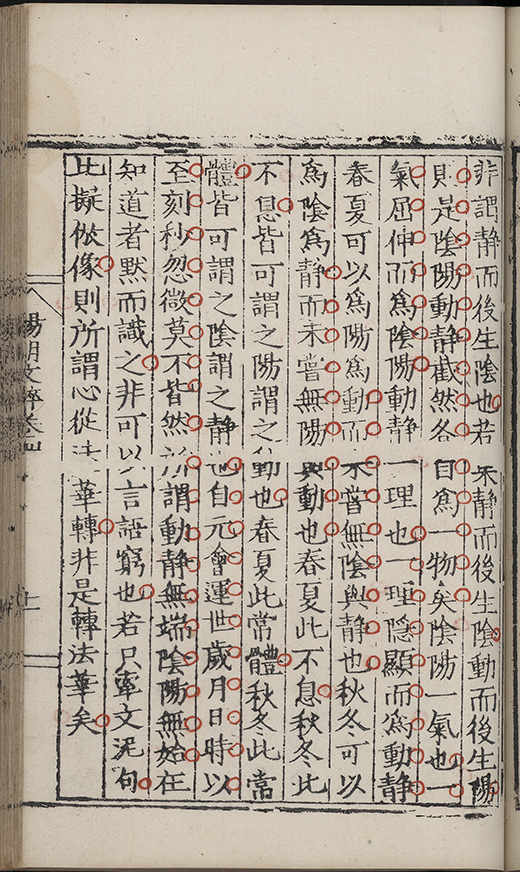 非謂静而後生陰也若果静而後生陰動而後生陽
則是陰陽動静截然各自爲一物矣陰陽一氣也一
氣屈伸而爲陰陽動静一理也一理隠顯而爲動静
春夏可以爲陽爲動而未嘗無陰與静也秋冬可以
爲陰爲静而未嘗無陽與動也春夏此不息秋冬此
不息皆可謂之陽謂之動也春夏此常體秋冬此常
體皆可謂之陰謂之静也自元會運世歲月日時以
至刻秒忽微莫不皆然所謂動静無端陰陽無始在
知道者黙而識之非可以言語窮也若只牽文泥句
比擬倣像則所謂心從法華轉非是轉法華矣
陽明文粹卷四